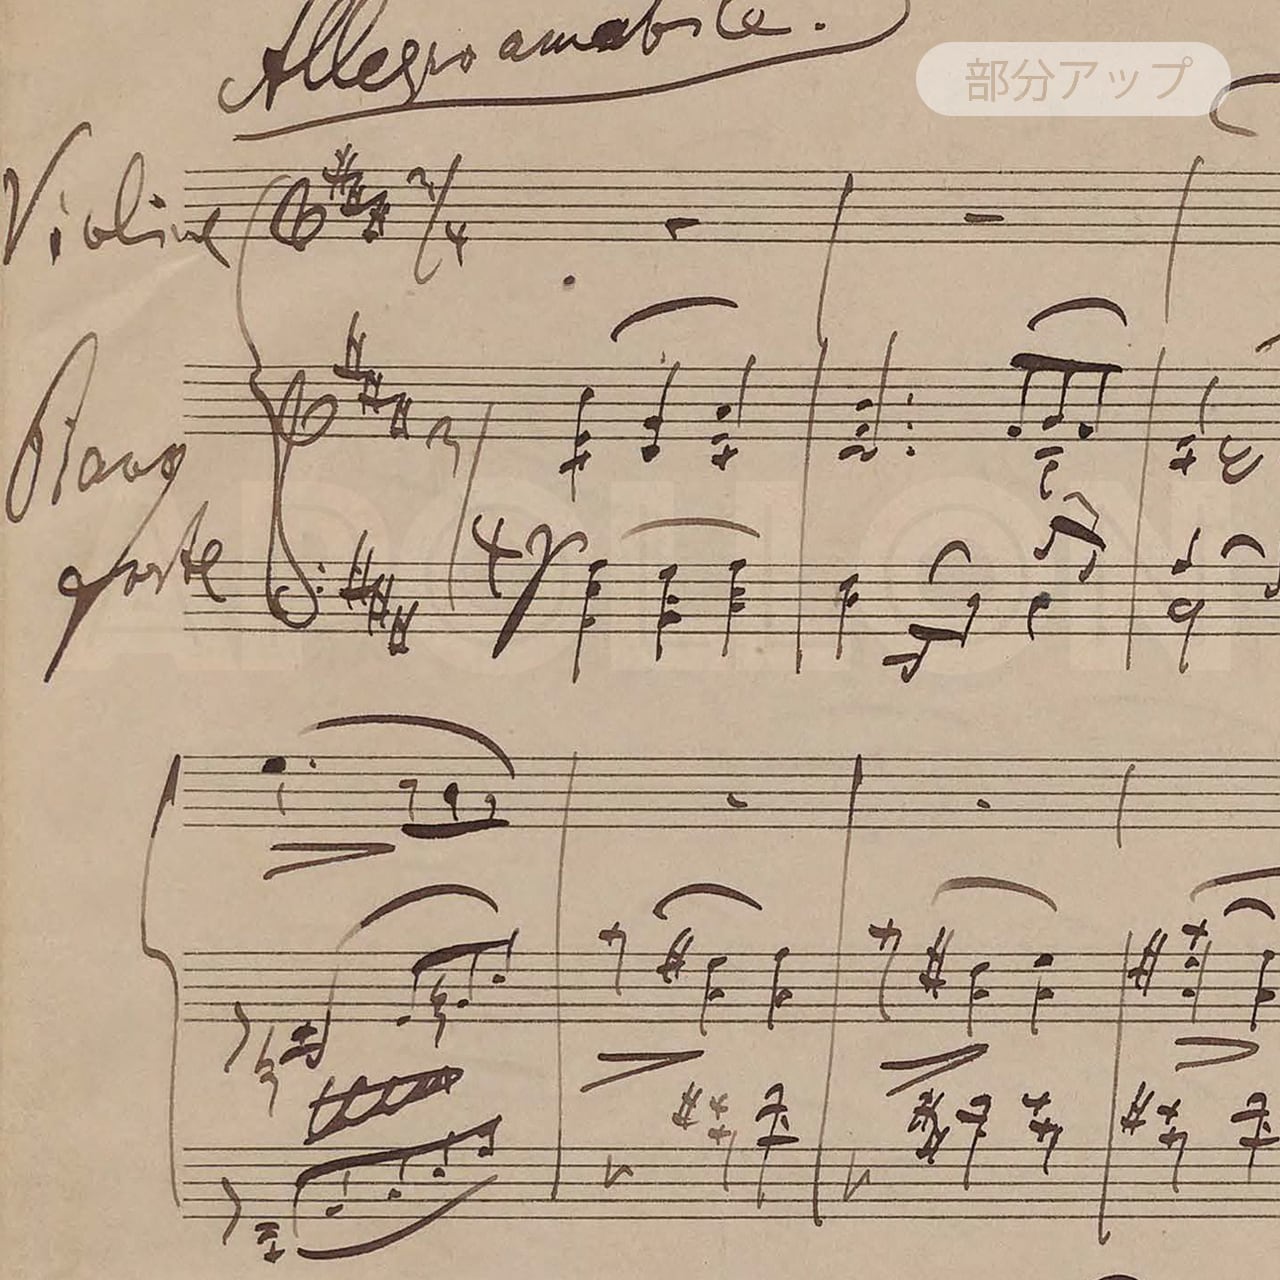 Allegro amabile.
部分アップ
Violine
3/4
Piano
3
4
forte
APOLLON